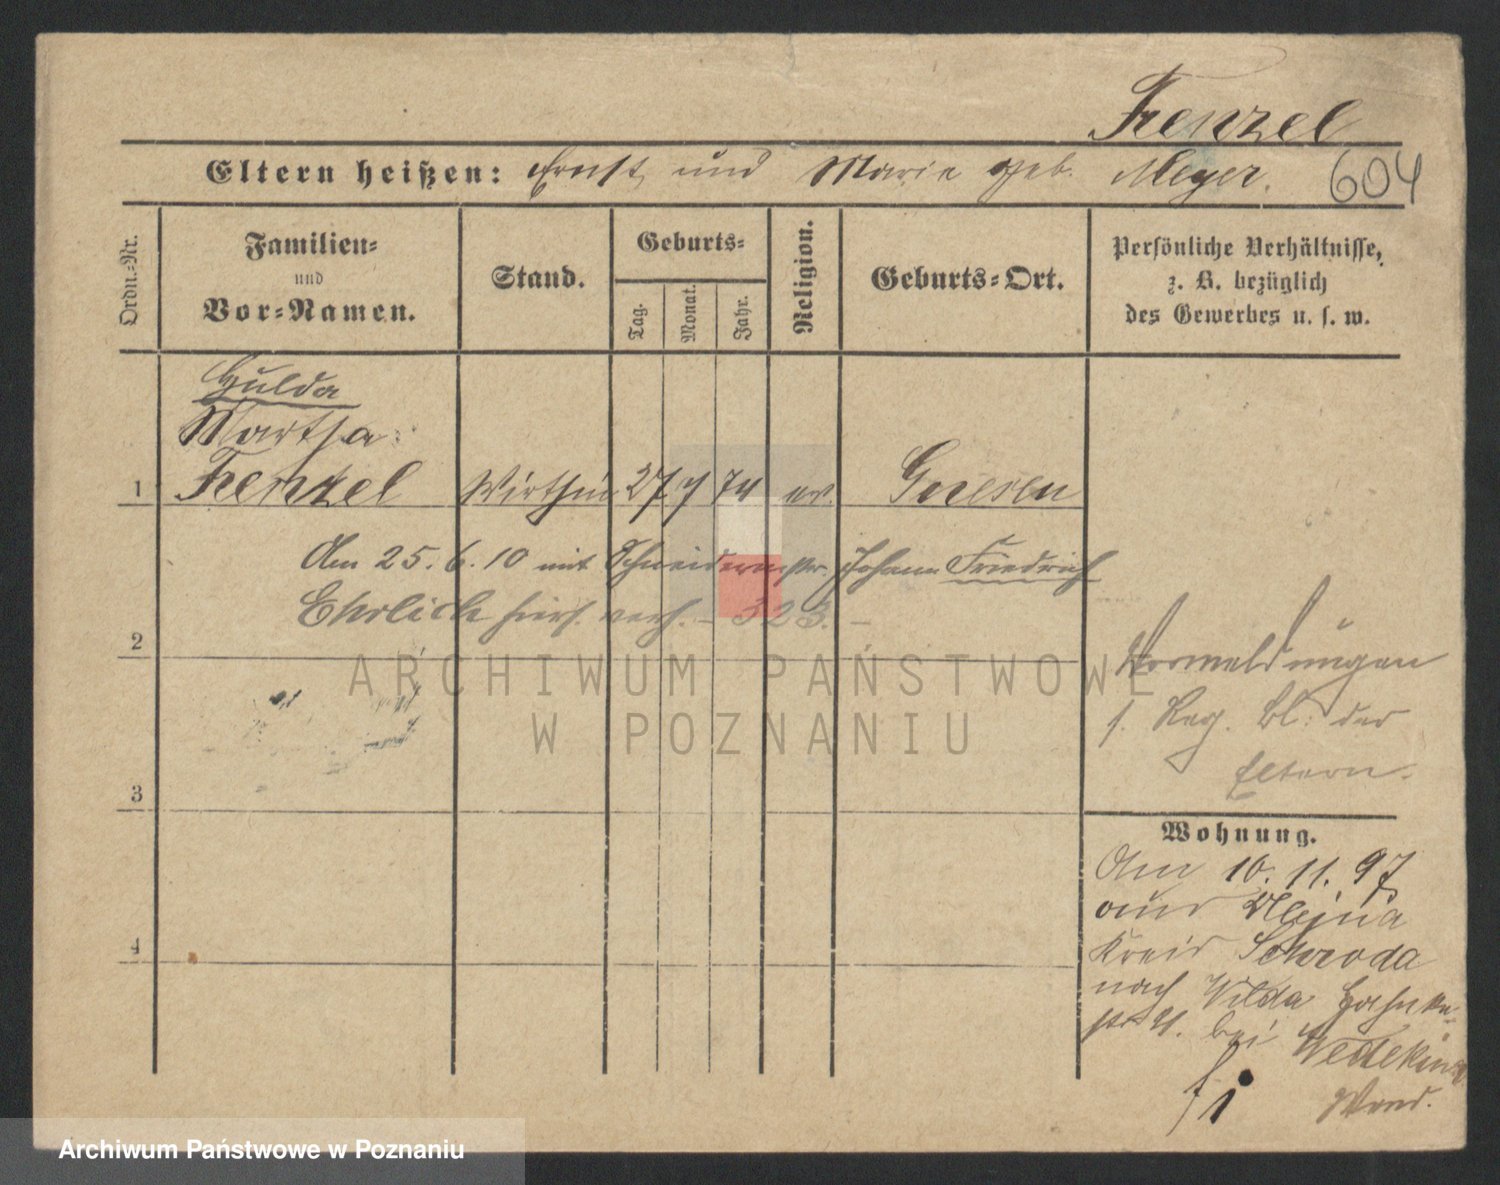 Frenzel
Eltern heißen: Ernst und Marie geb. Meyer.
604
Ordn.-Nr.
Familien-
und
Vor-Namen.
Stand.
Geburts-
Tag.
Monat.
Jahr.
Religion.
Geburts-Ort.
Persönliche Verhältnisse,
z. B. bezüglich
des Gewerbes u. s. w.
Hulda
Martha
1 Frenzel Wirthin 27 7 74 ev Gnesen
Am 25.6.10 mit Schneidermstr. Johann Friedrich
Ehrlich hiers. verh. - 323. -
2
Vormeldungen
s. Reg. Bl. der
Eltern.
3
Wohnung.
Am 10.11.97
aus
Kreis Schroda
nach Wilda
bei Wedekind
4
ARCHIWUM PAŃSTWOWE
W POZNANIU
Archiwum Państwowe w Poznaniu